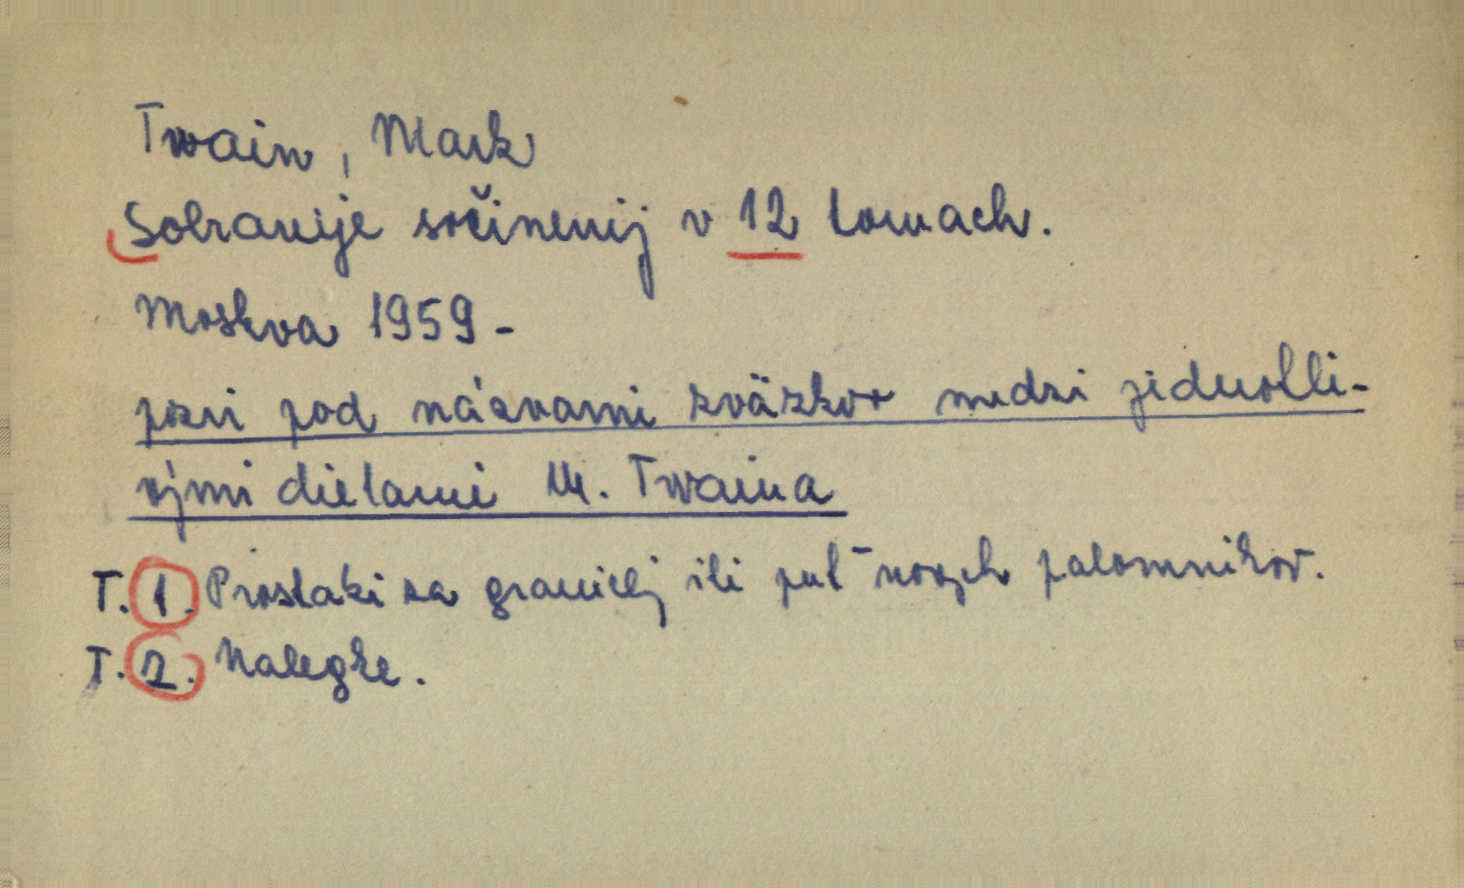 Twain, Mark
Sobranije sočinenij v 12 tomach.
Moskva 1959-
pozri pod názvami zväzkov medzi jednotli-
vými dielami M. Twaina
T. 1. Prostaki za granicej ili put- novych palomnikov.
T. 2. Nalegke.